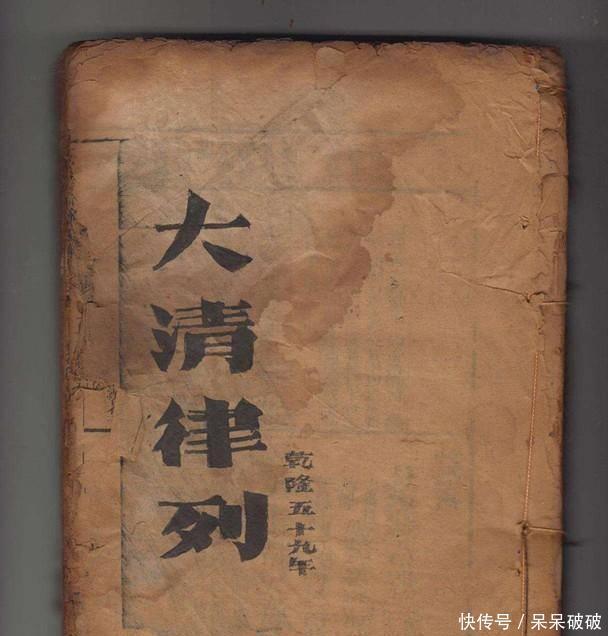 大清律列
乾隆五十九年
一
快传号／呆呆破破